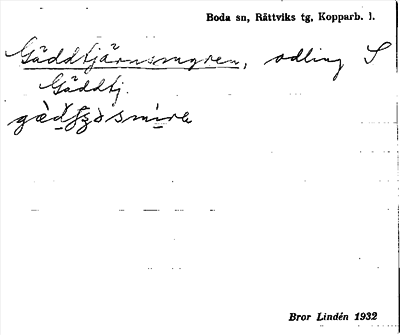 Boda sn, Rättviks tg, Kopparb. l.
Gäddtjärnsmyren, odling S
Gäddtj.
Bror Lindén 1932